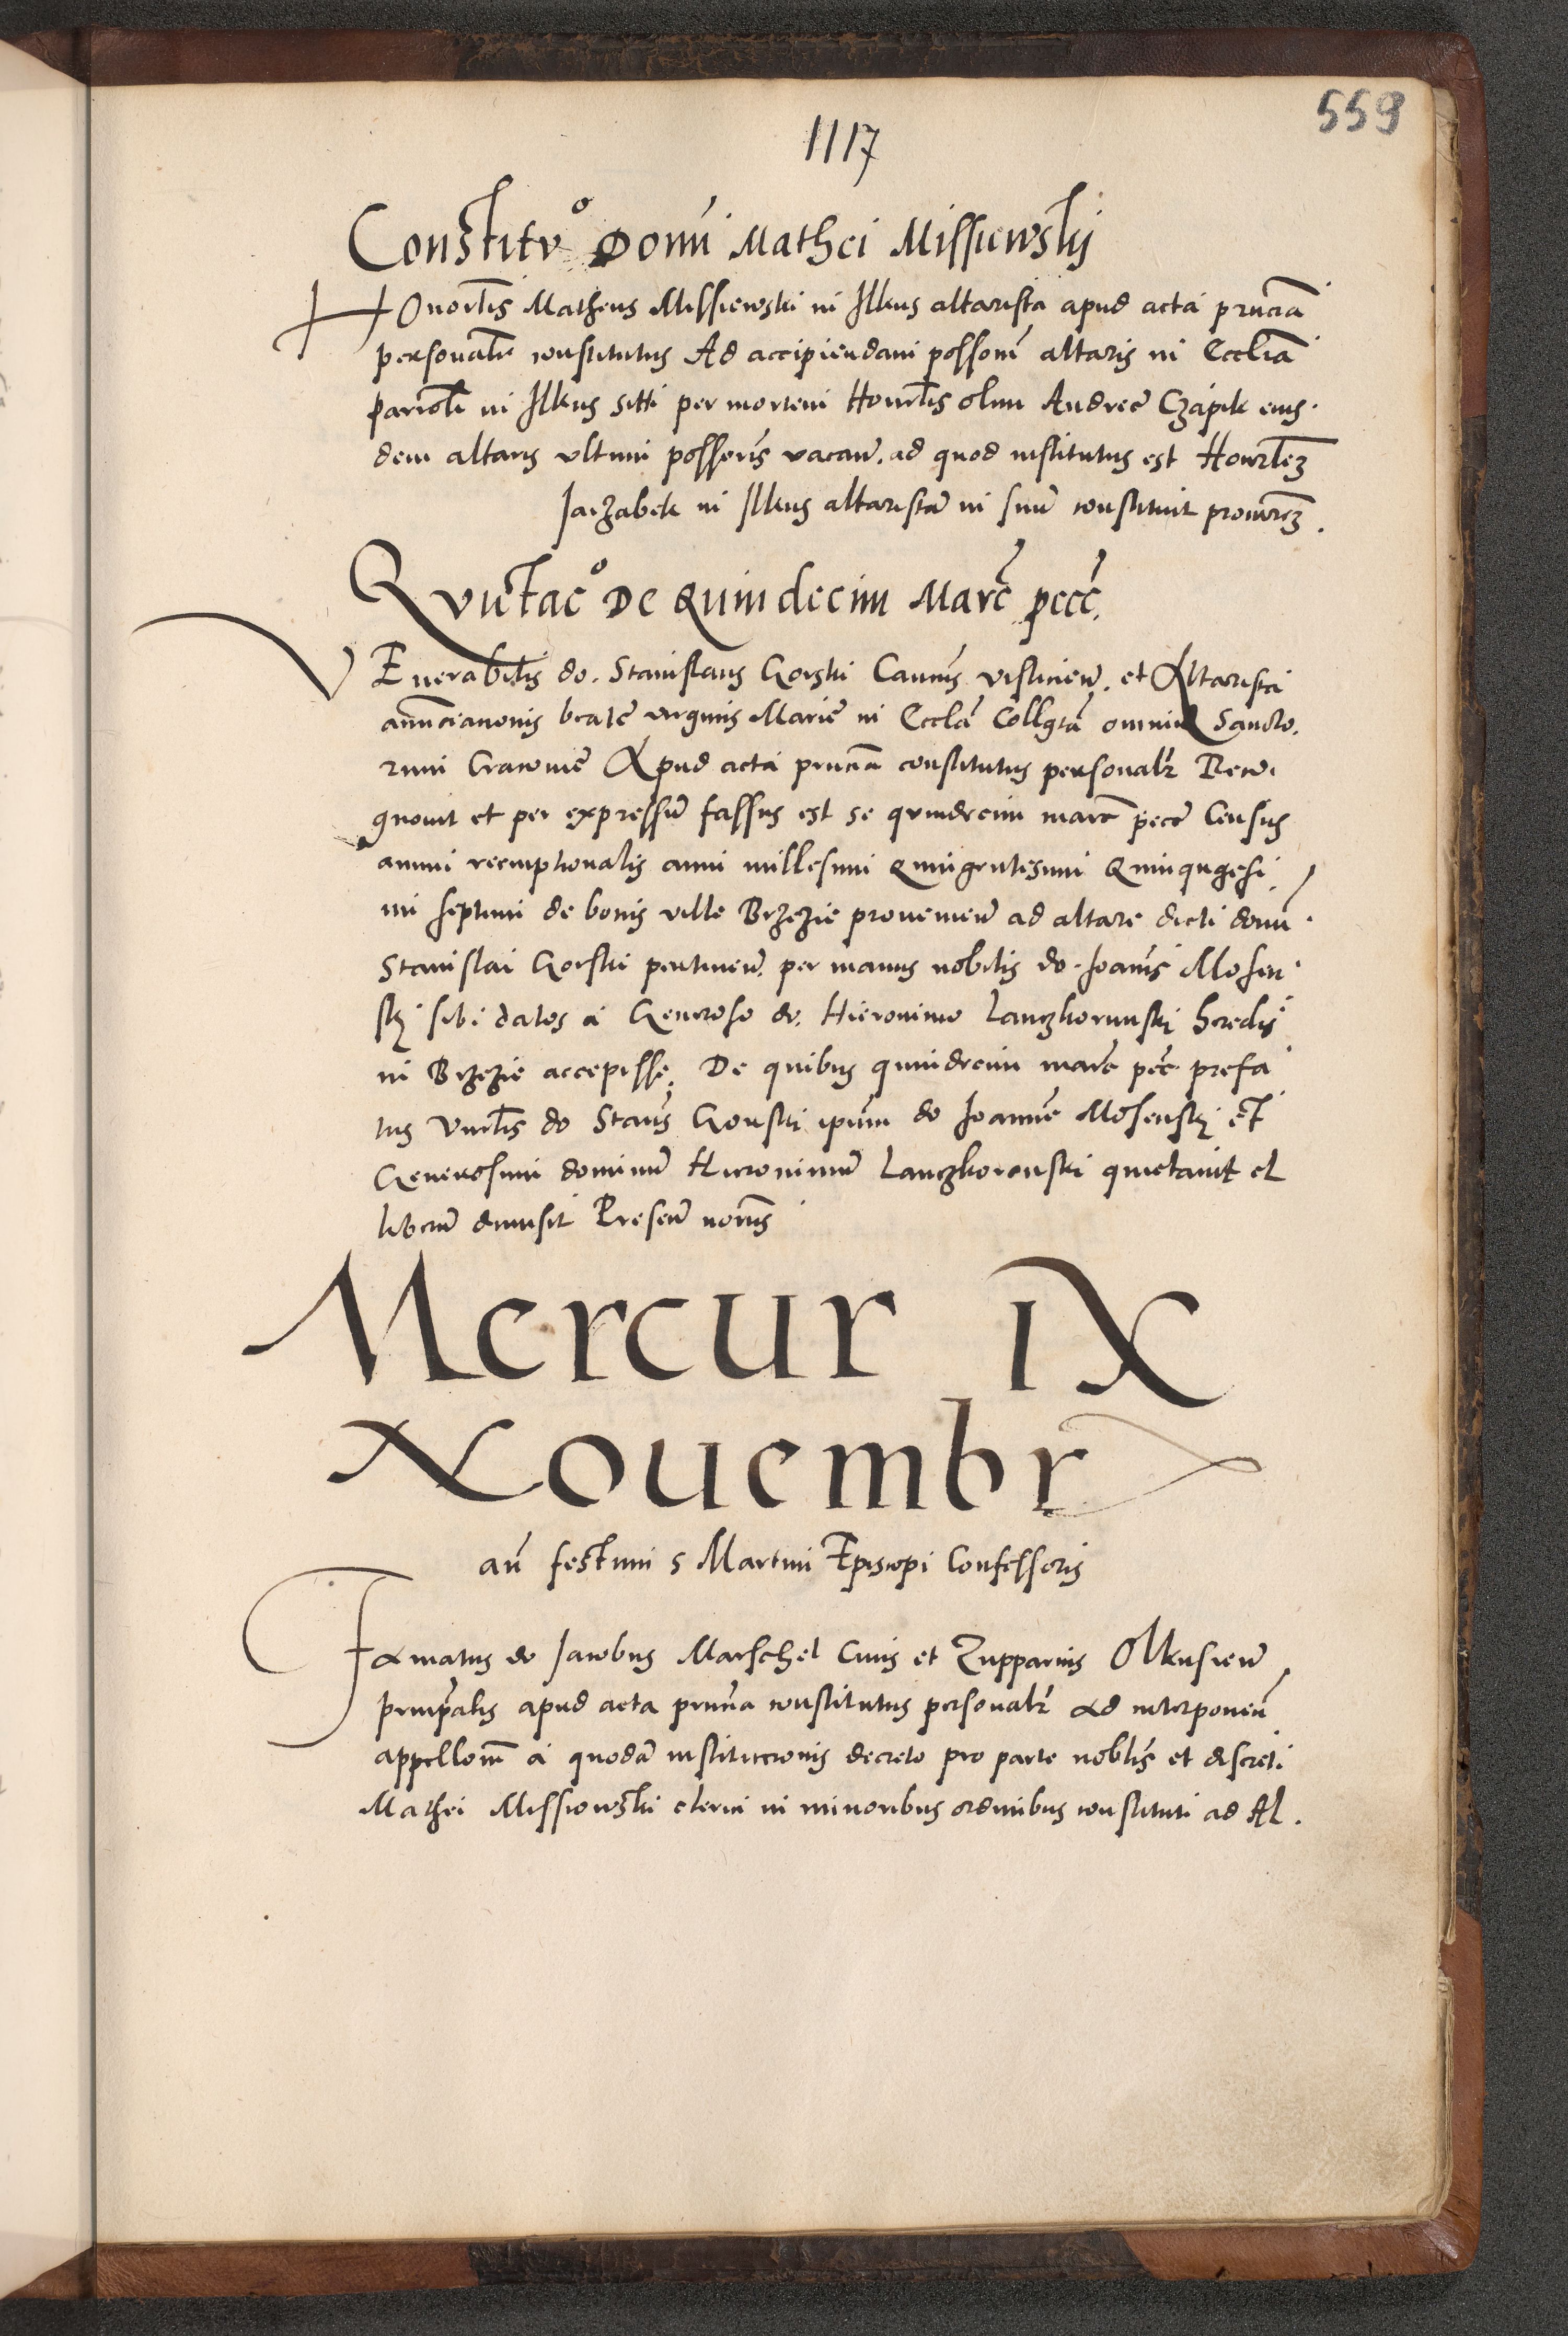 559
1117
Constitu° Domī Mathei Missiewskij
HOnorłis Matheus Missiewski in Ilkus altarista apud acta pñcia
personalr̄ constitutus Ad accipiendam possonē altaris in Ecclīa
parrołi in Ilkus sitti per mortem Honrłis olim Andreę Czapik eius
dem altaris vltimi possoris vacan̄. ad quod institutus est Honrłez
Jaczabek in Ilkus altaristā in suū constituit procurez.
Qvittac° De Quindecim Marc̄ pecc̄.
VEnerabilis do. Stanislaus Gorski Canc̄us visliciēn. et Altarista
annūcianonis beatę virginis Marię in Ecclā Collgtā omniū Sancto.
rum Cracouię Apud acta pñcia constitutus personalr̄ Reco.
gnouit et per expressū fassus est se quindecim marc̄ pecc̄ Census
annui reemptionalis anni millesimi Quingentesimi Quinquagesi
mi septimi de bonis ville Brzezie prouenieñ ad altare dicti domī
Stanislai Gorski pertineñ. per manus nobilis do. Joañis Mosen
skj sibi datos a Generoso do. Hieronimo Lanczkorunski heredis
in Brzezie accepisse. De quibus quindecim marc̄ pec̄ prefa
tus Vnrłis do Stañs Gorski ipsum do Joannē Mosenskj et
Generosum dominū Hieronimū Lanczkorunski quietauit et
liberū dimisit Preseñ notijs
Mercur IX
Nouembr
añ festum s Martini Episcopi Confessoris
Famatus do Jacobus Marschel Ciuis et Zupparius Olkusieñ
principalis apud acta pñcia constitutus personalr̄ ad interponeñ
appellonē a quodā institucionis decreto pro parte noblis et discreti
Mathei Missiowski clerici in minoribus ordinibus constituti ad Al.